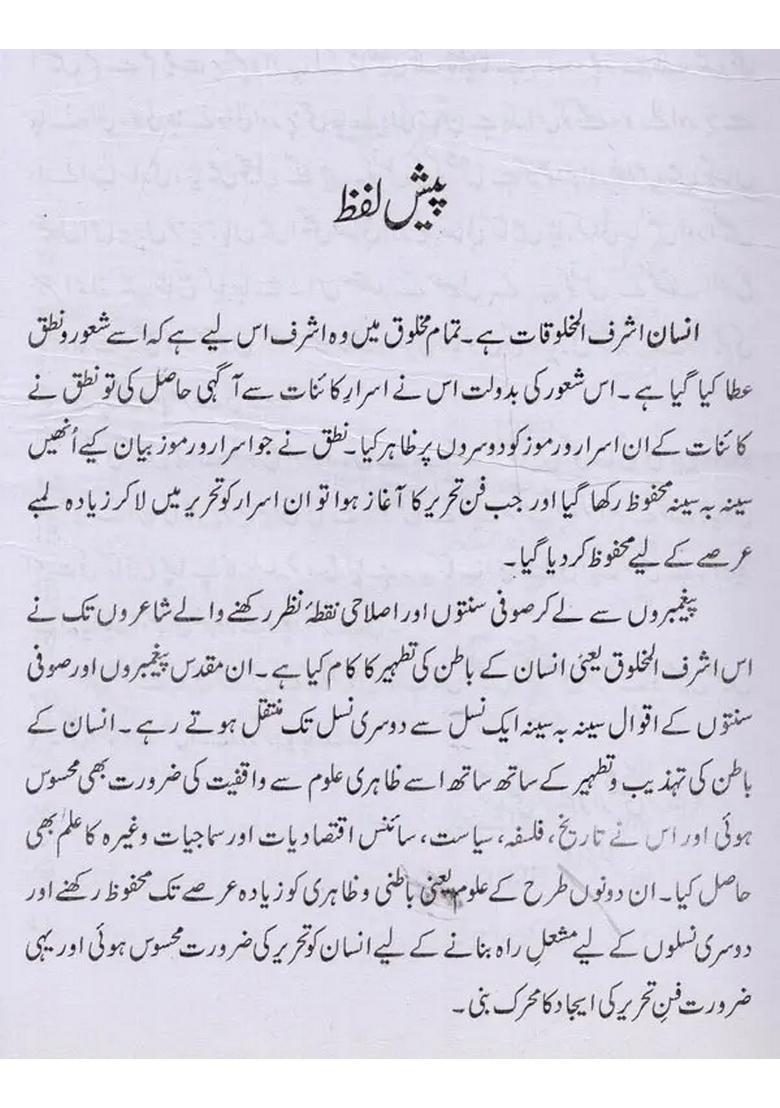 پیش لفظ
انسان اشرف المخلوقات ہے۔ تمام مخلوق میں وہ اشرف اس لیے ہے کہ اسے شعور و نطق
عطا کیا گیا ہے۔ اس شعور کی بدولت اس نے اسرارِ کائنات سے آگہی حاصل کی تو نطق نے
کائنات کے ان اسرار و رموز کو دوسروں پر ظاہر کیا۔ نطق نے جو اسرار و رموز بیان کیے اُنھیں
سینہ بہ سینہ محفوظ رکھا گیا اور جب فن تحریر کا آغاز ہوا تو ان اسرار کو تحریر میں لا کر زیادہ لمبے
عرصے کے لیے محفوظ کر دیا گیا۔
پیغمبروں سے لے کر صوفی سنتوں اور اصلاحی نقطۂ نظر رکھنے والے شاعروں تک نے
اس اشرف المخلوق یعنی انسان کے باطن کی تطہیر کا کام کیا ہے۔ ان مقدس پیغمبروں اور صوفی
سنتوں کے اقوال سینہ بہ سینہ ایک نسل سے دوسری نسل تک منتقل ہوتے رہے۔ انسان کے
باطن کی تہذیب و تطہیر کے ساتھ ساتھ اسے ظاہری علوم سے واقفیت کی ضرورت بھی محسوس
ہوئی اور اس نے تاریخ، فلسفہ، سیاست، سائنس اقتصادیات اور سماجیات وغیرہ کا علم بھی
حاصل کیا۔ ان دونوں طرح کے علوم یعنی باطنی و ظاہری کو زیادہ عرصے تک محفوظ رکھنے اور
دوسری نسلوں کے لیے مشعلِ راہ بنانے کے لیے انسان کو تحریر کی ضرورت محسوس ہوئی اور یہی
ضرورت فنِ تحریر کی ایجاد کا محرک بنی۔